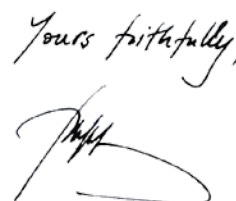 Yours faithfully,